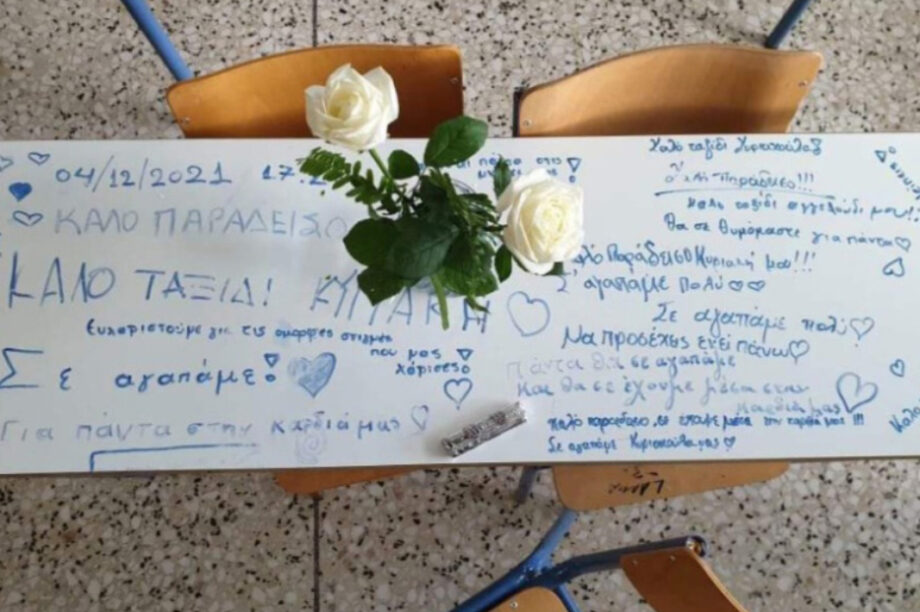 04/12/2021
ΚΑΛΟ ΠΑΡΑΔΕΙΣΟ
ΚΑΛΟ ΤΑΞΙΔΙ ΚΥΡΙΑΚΗ
Ευχαριστούμε για τις ομορφες στιγμες
που μας
χάρισες!
Σε αγαπάμε!
Για πάντα στην καρδιά μας
Καλό ταξίδι
Παράδεισο!!!
Καλο ταξίδι αγγελούδι μου!!
θα σε θυμόμαστε για πάντα
Καλό Παράδεισο Κυριακή μου!!!
Σ αγαπάμε Πολύ
Σε αγαπάμε πολύ
Να προσέχεις εκεί πάνω
Πάντα θα σε αγαπάμε
και θα σε έχουμε μέσα στην
καρδιά μας
καλό παράδεισο
Σε αγαπάμε